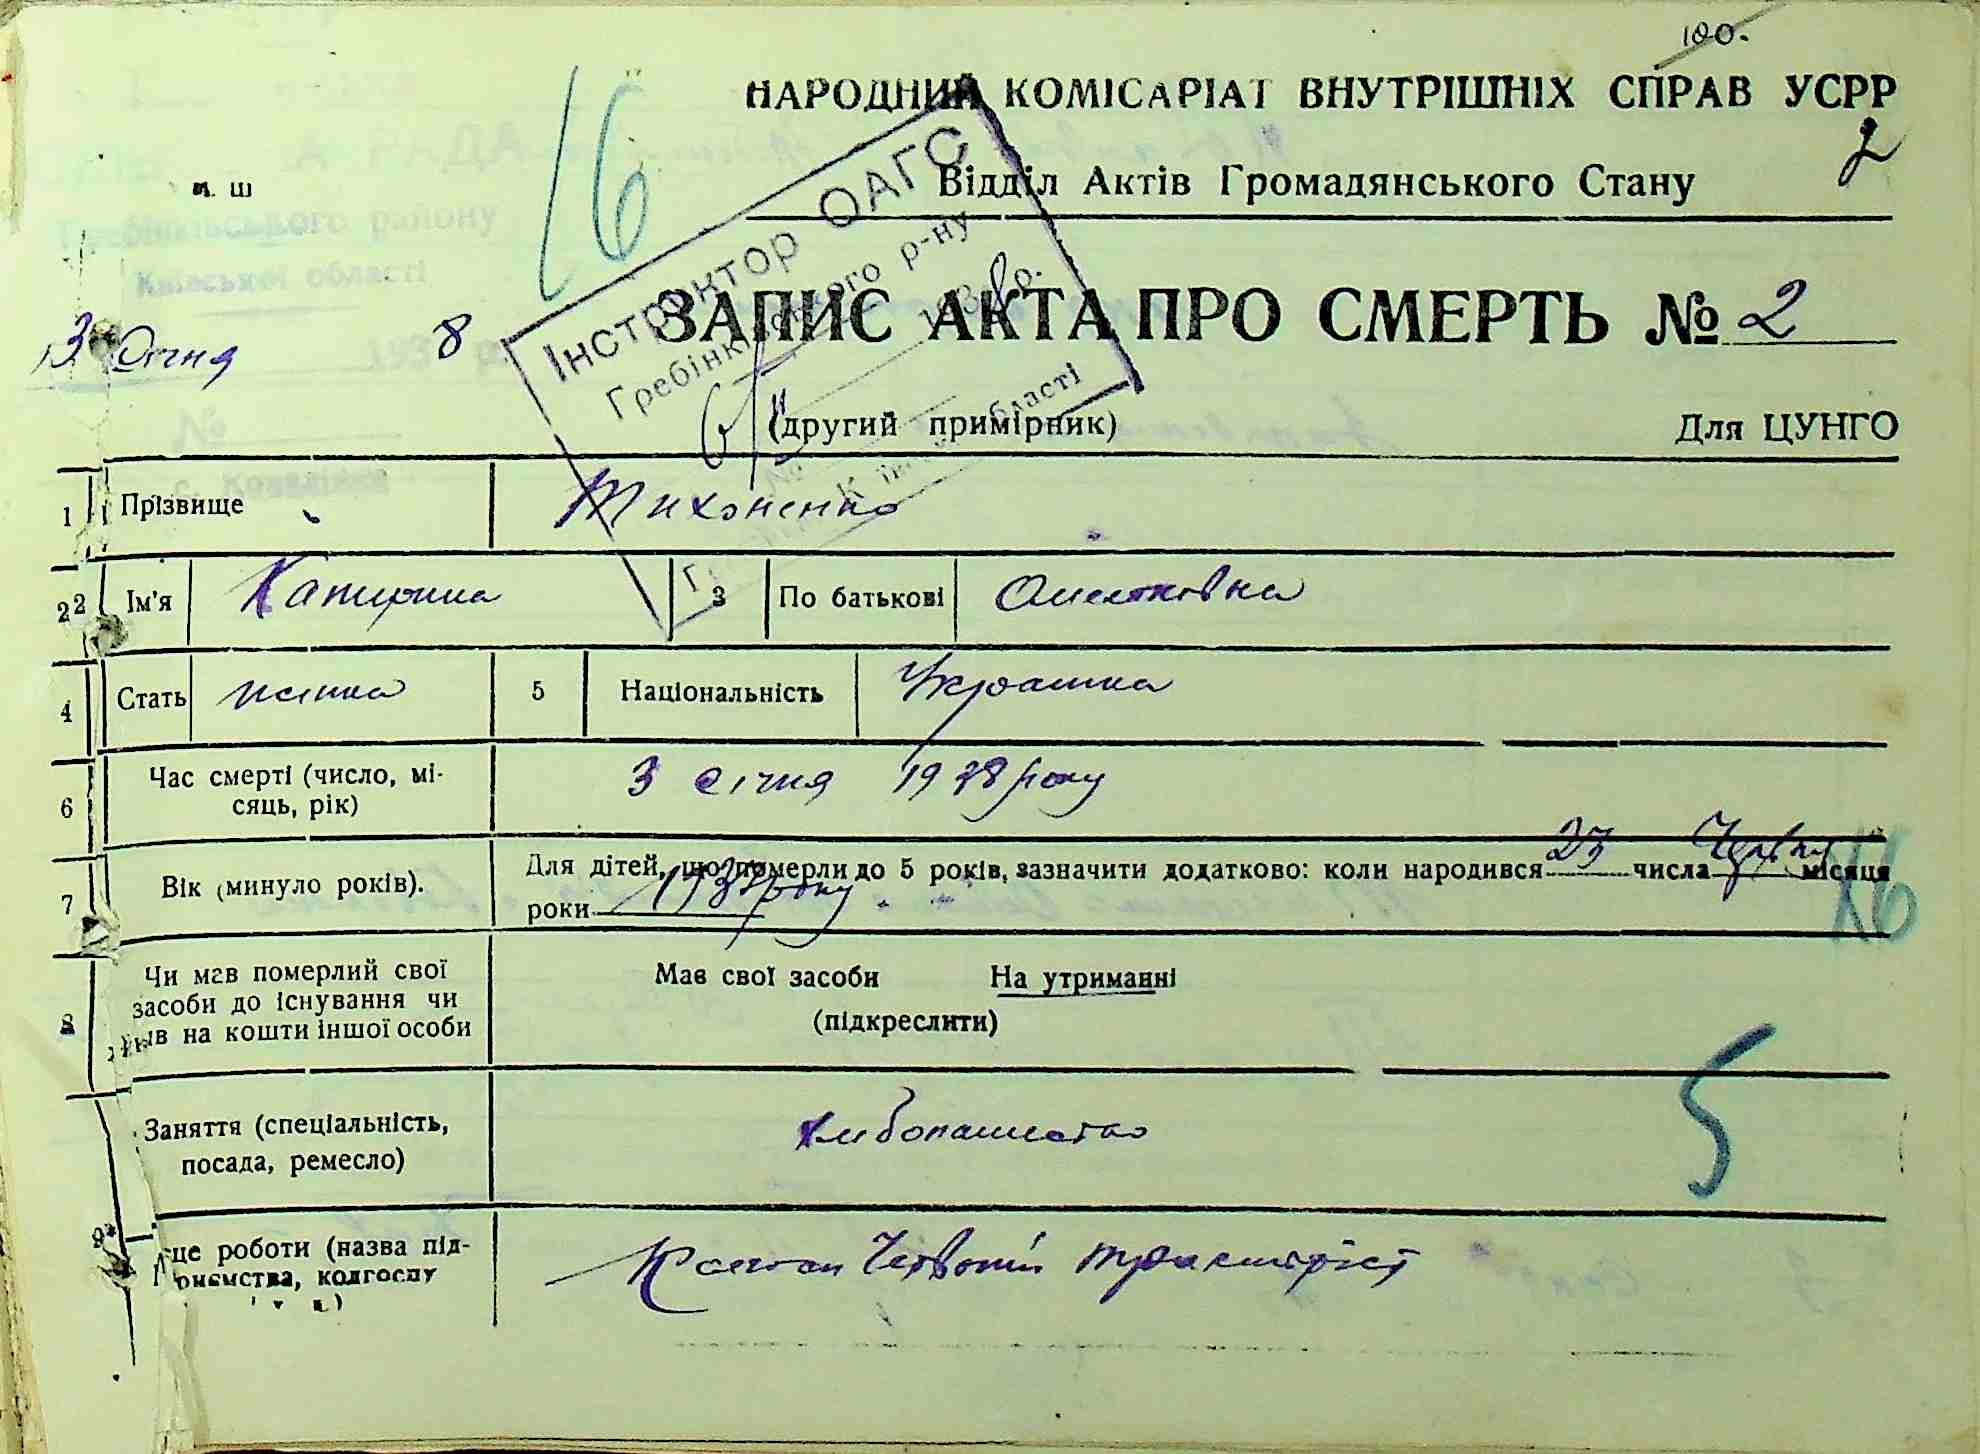 100.
НАРОДНИЙ КОМІСАРІАТ ВНУТРІШНІХ СПРАВ УСРР
2
Відділ Актів Громадянського Стану
м. Ш
16
Інструктор ОАГС
Гребінківського р-ну
193 р.
області
А РАДА
Гребінківського району
Київської області
3 Січня 1938 р.
№
с. Ковалівка
ЗАПИС АКТА ПРО СМЕРТЬ № 2
(другий примірник)
Для ЦУНГО
1 Прізвище Тихоненко
2 Ім'я Катирина 3 По батькові
4 Стать жінка 5 Національність Украінка
6 Час смерті (число, місяць, рік) 3 січня 1938 року
7 Вік (минуло років). Для дітей, що померли до 5 років, зазначити додатково: коли народився 23 числа місяця
роки 1937 року
16
8 Чи мав померлий свої засоби до існування чи був на кошти іншої особи
Має свої засоби На утриманні
(підкреслити)
5
Заняття (спеціальність, посада, ремесло) хлибопашество
9 це роботи (назва підприємства, колгоспу Колгосп Червоний тракторіст